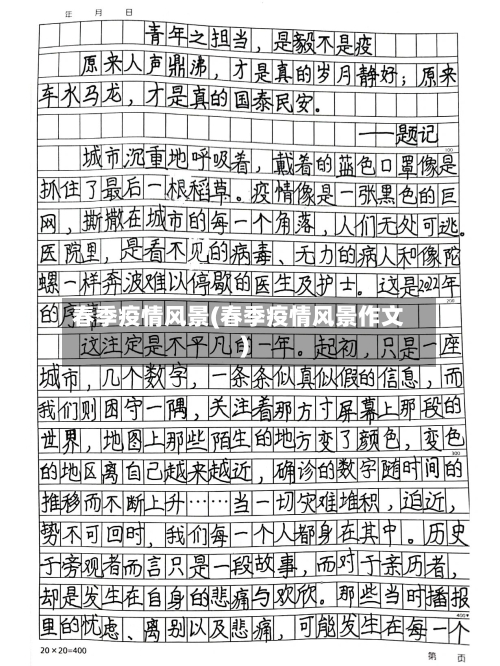 年 月 日
青年之担当，是毅不是疫
原来人声鼎沸，才是真的岁月静好；原来
车水马龙，才是真的国泰民安。
——题记
100
城市沉重地呼吸着，戴着的蓝色口罩像是
抓住了最后一根稻草。疫情像是一张黑色的巨
网，撕撒在城市的每一个角落，人们无处可逃。
医院里，是看不见的病毒、无力的病人和像陀
螺一样奔波难以停歇的医生及护士。这是2022年
200
的序
春季疫情风景(春季疫情风景作文
)
这注定是不平凡的一年。起初，只是一座
城市，几个数字，一条条似真似假的信息，而
我们则困守一隅，关注着那方寸屏幕上那段的
世界，地图上那些陌生的地方变了颜色，变色
300
的地区离自己越来越近，确诊的数字随时间的
推移而不断上升……当一切灾难堆积，迫近，
势不可回时，我们每一个人都身在其中。历史
于旁观者而言只是一段故事，而对于亲历者，
却是发生在自身的悲痛与欢欣。那些当时播报
400
里的忧虑、离别以及悲痛，可能发生在每一个
20×20=400
第 页